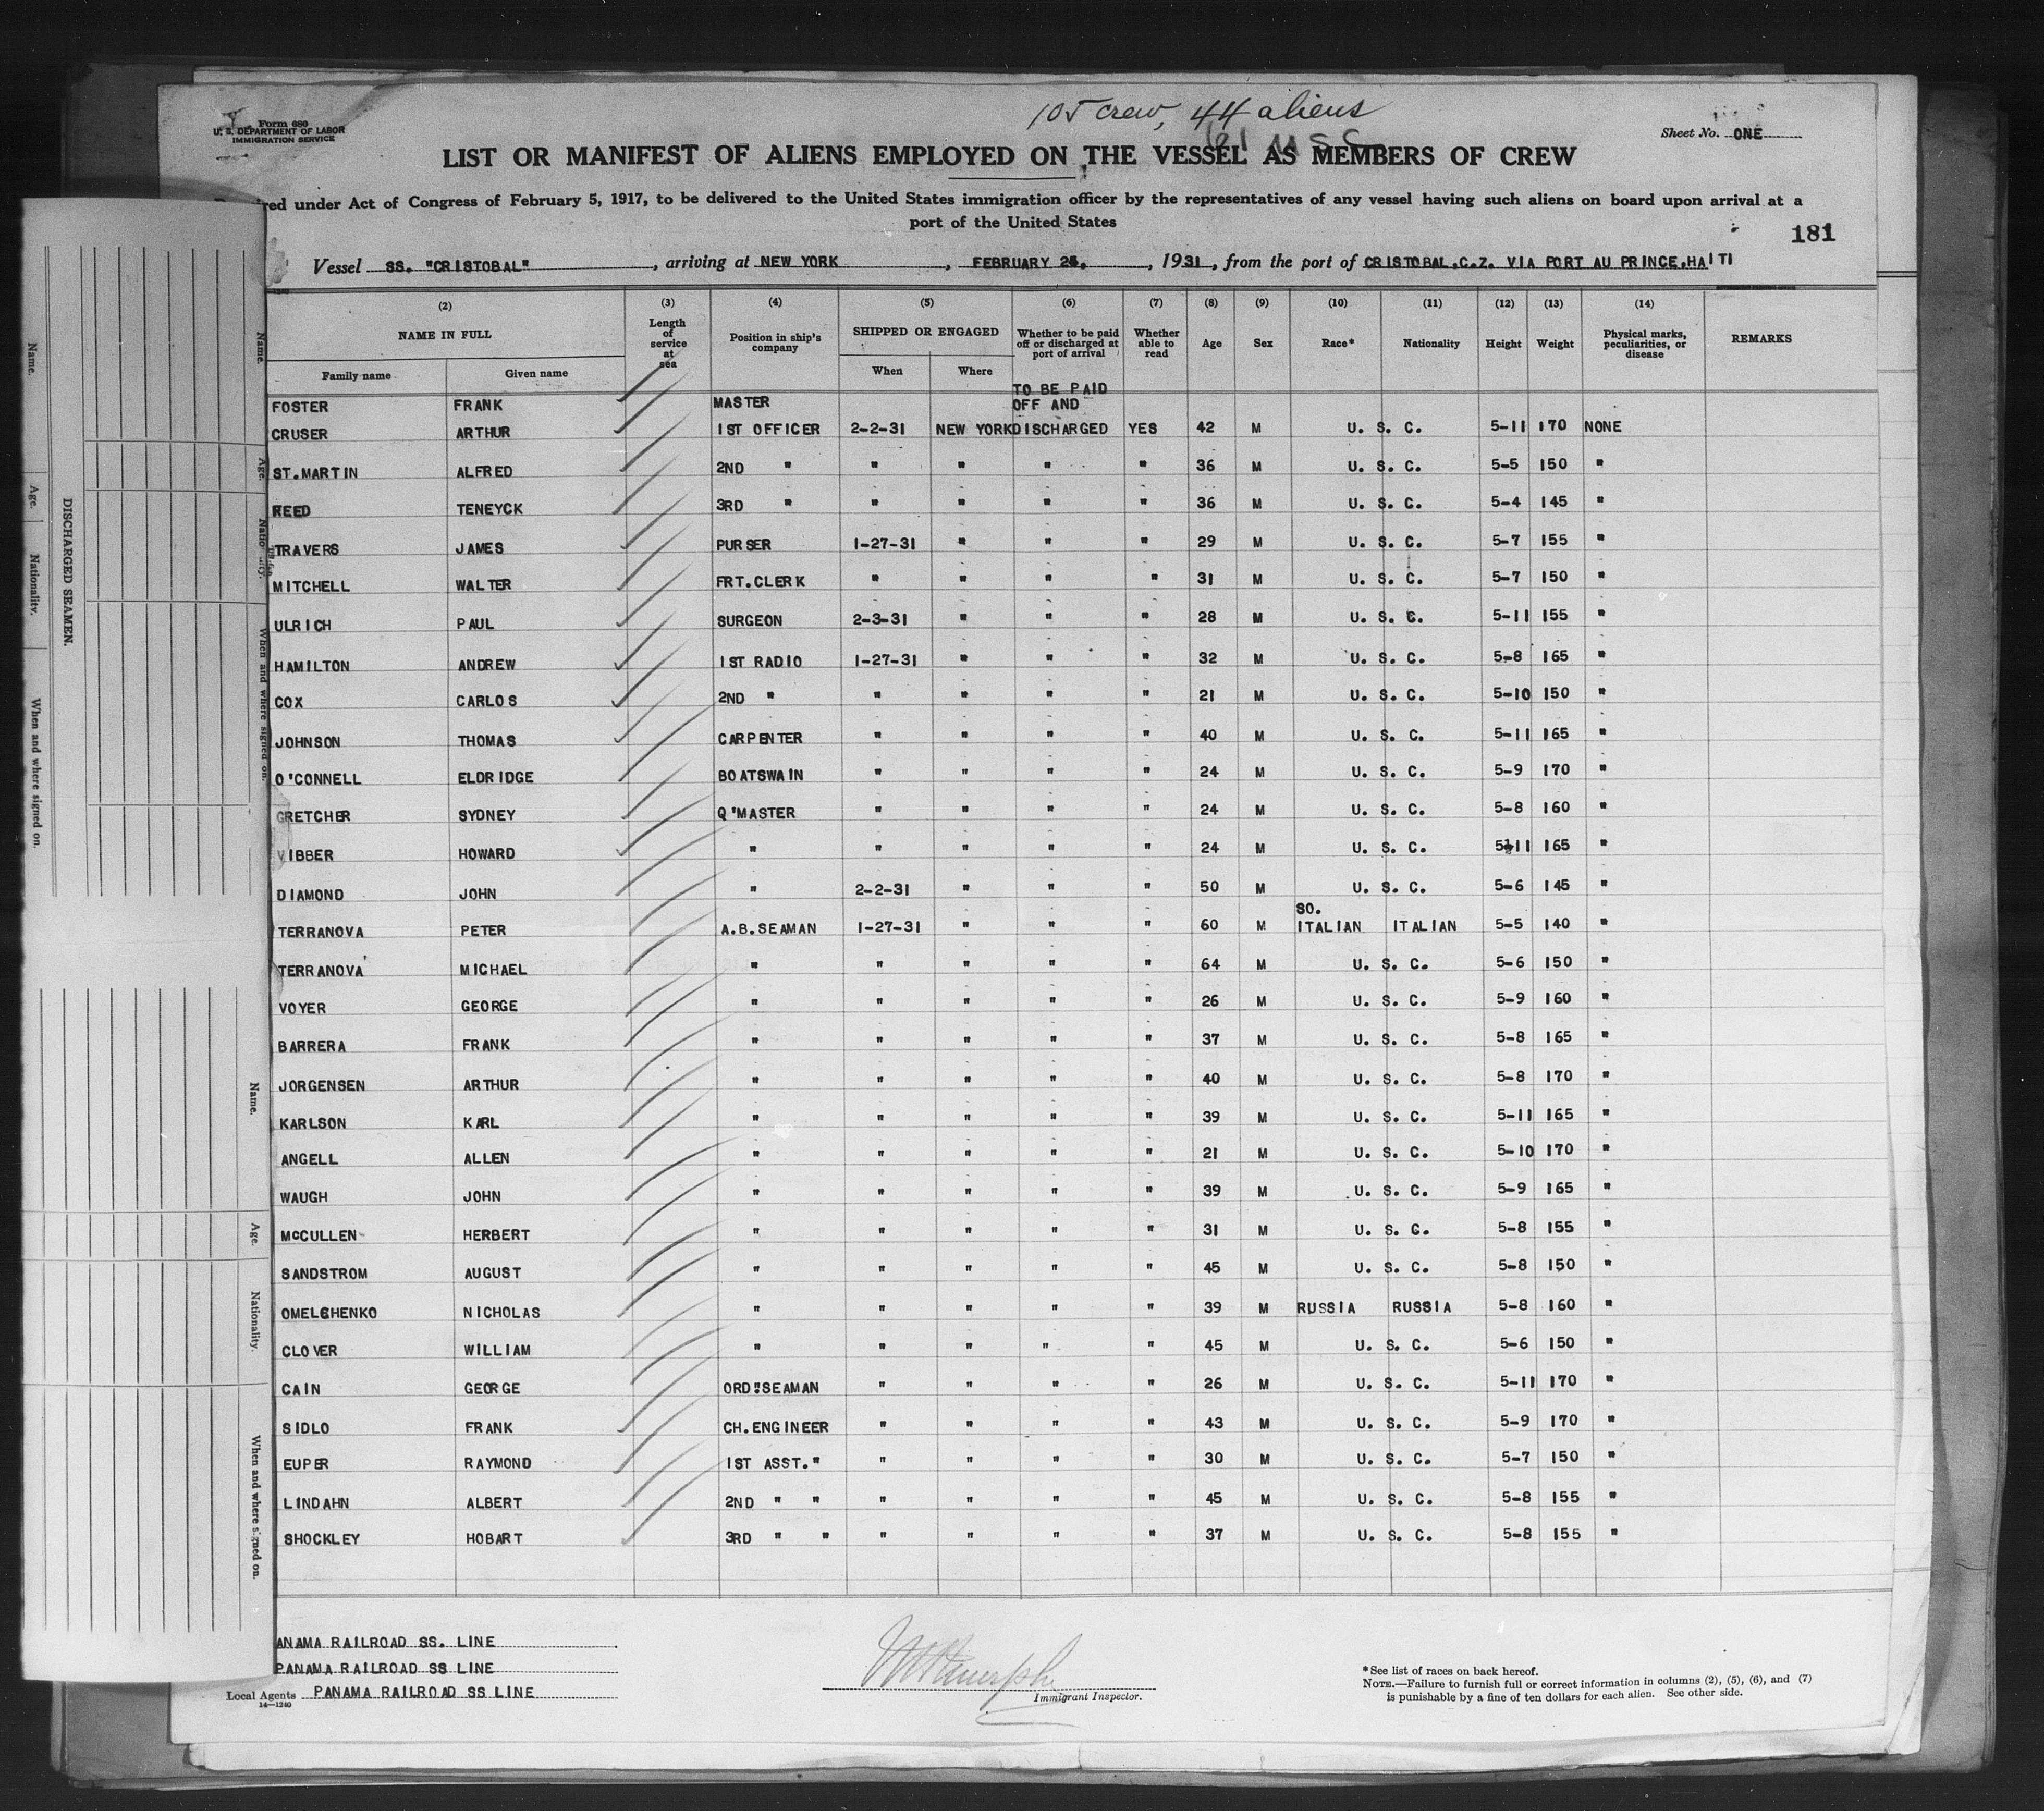 105 crew, 44 aliens
61 U S C
Form 680
U. S. DEPARTMENT OF LABOR
IMMIGRATION SERVICE
Sheet No. ONE
LIST OR MANIFEST OF ALIENS EMPLOYED ON THE VESSEL AS MEMBERS OF CREW
red under Act of Congress of February 5, 1917, to be delivered to the United States immigration officer by the representatives of any vessel having such aliens on board upon arrival at a
port of the United States
181
Vessel SS. "CRISTOBAL", arriving at NEW YORK, FEBRUARY 24, 1931, from the port of CRISTOBAL.C.Z. VIA PORT AU PRINCE,HAITI
(2) (3) (4) (5) (6) (7) (8) (9) (10) (11) (12) (13) (14)
NAME IN FULL Length of service at sea Position in ship's company SHIPPED OR ENGAGED Whether to be paid off or discharged at port of arrival Whether able to read Age Sex Race* Nationality Height Weight Physical marks, peculiarities, or disease REMARKS
Family name Given name When Where
TO BE PAID
FOSTER FRANK MASTER OFF AND
CRUSER ARTHUR 1ST OFFICER 2-2-31 NEW YORK DISCHARGED YES 42 M U. S. C. 5-11 170 NONE
ST.MARTIN ALFRED 2ND " " " " " 36 M U. S. C. 5-5 150 "
REED TENEYCK 3RD " " " " " 36 M U. S. C. 5-4 145 "
TRAVERS JAMES PURSER 1-27-31 " " " 29 M U. S. C. 5-7 155 "
MITCHELL WALTER FRT.CLERK " " " " 31 M U. S. C. 5-7 150 "
ULRICH PAUL SURGEON 2-3-31 " " " 28 M U. S. C. 5-11 155 "
HAMILTON ANDREW 1ST RADIO 1-27-31 " " " 32 M U. S. C. 5-8 165 "
COX CARLOS 2ND " " " " " 21 M U. S. C. 5-10 150 "
JOHNSON THOMAS CARPENTER " " " " 40 M U. S. C. 5-11 165 "
O'CONNELL ELDRIDGE BOATSWAIN " " " " 24 M U. S. C. 5-9 170 "
GRETCHER SYDNEY Q'MASTER " " " " 24 M U. S. C. 5-8 160 "
VIBBER HOWARD " " " " " 24 M U. S. C. 5½11 165 "
DIAMOND JOHN " 2-2-31 " " " 50 M U. S. C. 5-6 145 "
SO.
TERRANOVA PETER A.B.SEAMAN 1-27-31 " " " 60 M ITALIAN ITALIAN 5-5 140 "
TERRANOVA MICHAEL " " " " " 64 M U. S. C. 5-6 150 "
VOYER GEORGE " " " " " 26 M U. S. C. 5-9 160 "
BARRERA FRANK " " " " " 37 M U. S. C. 5-8 165 "
JORGENSEN ARTHUR " " " " " 40 M U. S. C. 5-8 170 "
KARLSON KARL " " " " " 39 M U. S. C. 5-11 165 "
ANGELL ALLEN " " " " " 21 M U. S. C. 5-10 170 "
WAUGH JOHN " " " " " 39 M U. S. C. 5-9 165 "
McCULLEN HERBERT " " " " " 31 M U. S. C. 5-8 155 "
SANDSTROM AUGUST " " " " " 45 M U. S. C. 5-8 150 "
OMELCHENKO NICHOLAS " " " " " 39 M RUSSIA RUSSIA 5-8 160 "
CLOVER WILLIAM " " " " " 45 M U. S. C. 5-6 150 "
CAIN GEORGE ORD"SEAMAN " " " " 26 M U. S. C. 5-11 170 "
SIDLO FRANK CH.ENGINEER " " " " 43 M U. S. C. 5-9 170 "
EUPER RAYMOND 1ST ASST." " " " " 30 M U. S. C. 5-7 150 "
LINDAHN ALBERT 2ND " " " " " " 45 M U. S. C. 5-8 155 "
SHOCKLEY HOBART 3RD " " " " " " 37 M U. S. C. 5-8 155 "
ANAMA RAILROAD SS. LINE
PANAMA RAILROAD SS LINE
Local Agents PANAMA RAILROAD SS LINE
14—1240
Immigrant Inspector.
*See list of races on back hereof.
NOTE.—Failure to furnish full or correct information in columns (2), (5), (6), and (7)
is punishable by a fine of ten dollars for each alien. See other side.
DISCHARGED SEAMEN.
Name.
Age.
Nationality.
When and where signed on.
Name.
Age.
Nationality.
When and where signed on.
Name.
Age.
Nationality.
When and where signed on.